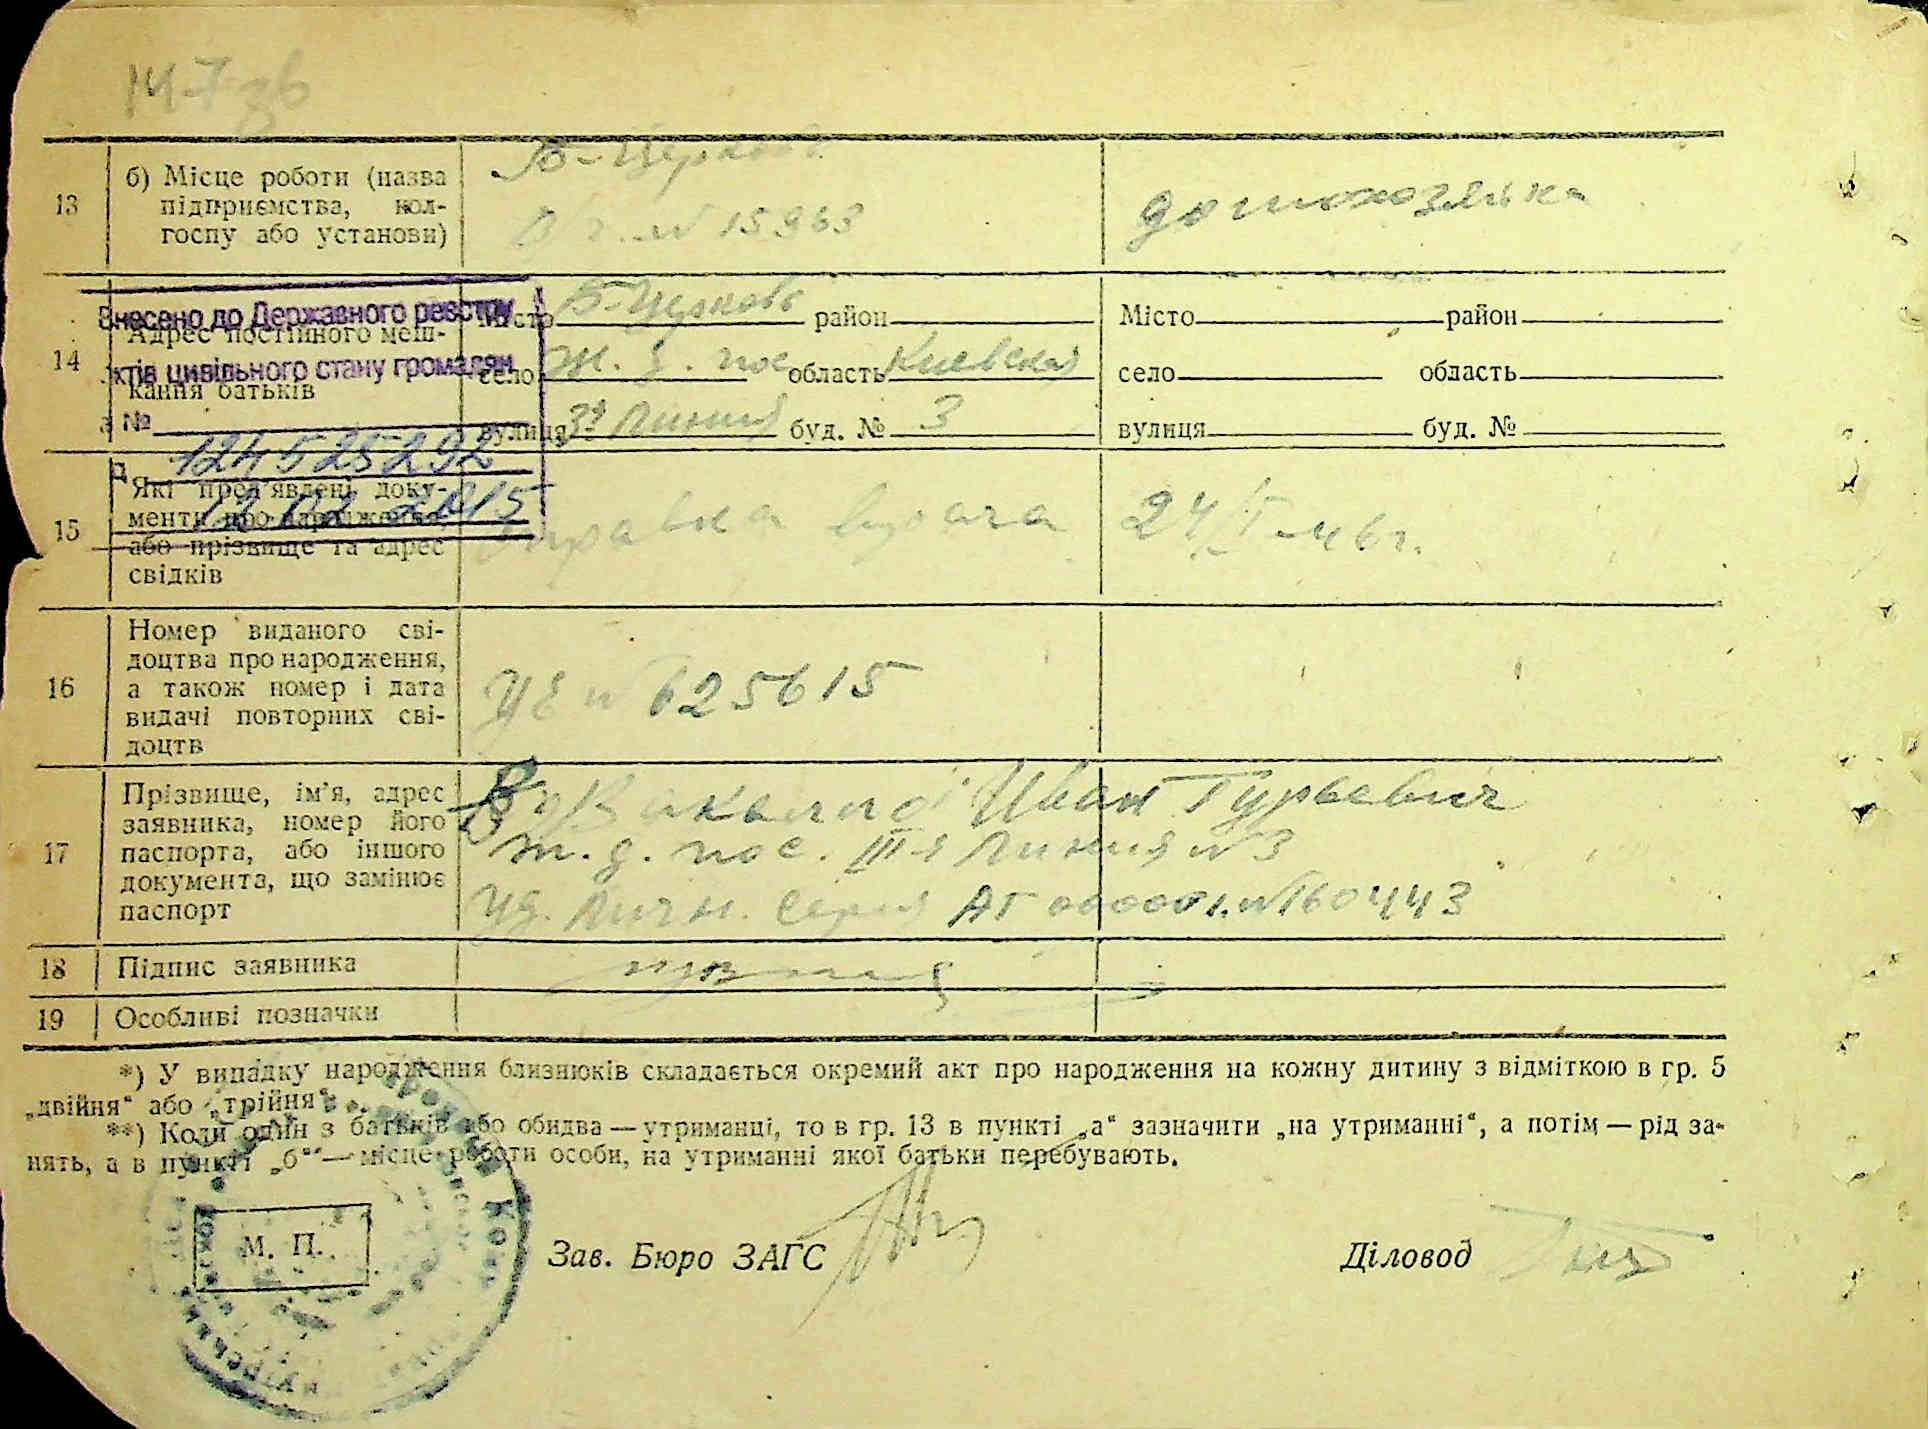 13
б) Місце роботи (назва
підприємства, кол-
госпу або установи)
Б-Церковь
В ч. № 15963
домохозяйка
14
Внесено до Державного реєстру
Адрес постійного меш-
актів цивільного стану громадян
кання батьків
за №
124525292
12.02.2015
Місто Б-Церковь район
село ж. д. пос. область Киевская
вулиця 3я Линия буд. № 3
Місто район
село область
вулиця буд. №
15
Які пред'явлені доку-
менти про народження,
або прізвище та адрес
свідків
Справка врача
16
Номер виданого сві-
доцтва про народження,
а також номер і дата
видачі повторних сві-
доцтв
№ 625615
17
Прізвище, ім'я, адрес
заявника, номер його
паспорта, або іншого
документа, що замінює
паспорт
Иван Гурьевич
ж. д. пос. III-я Линия № 3
Уд. Личн. Серия АГ № 160443
18
Підпис заявника
19
Особливі позначки
*) У випадку народження близнюків складається окремий акт про народження на кожну дитину з відміткою в гр. 5
„двійня“ або „трійня“.
**) Коли один з батьків або обидва — утриманці, то в гр. 13 в пункті „а“ зазначити „на утриманні“, а потім — рід за-
нять, а в пункті „б“ — місце роботи особи, на утриманні якої батьки перебувають.
М. П.
Зав. Бюро ЗАГС
Діловод